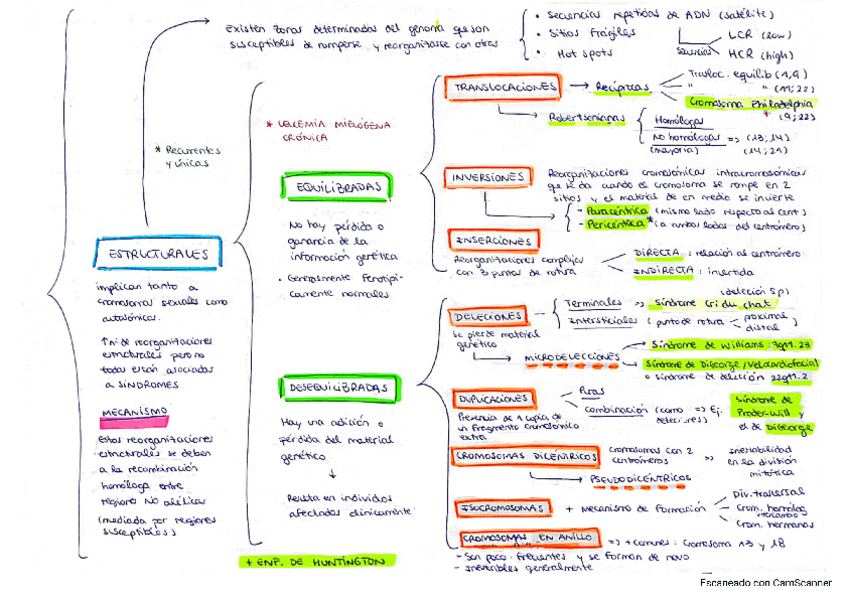 Existen zonas determinadas del genoma que son
susceptibles de romperse y reorganizarse con otras
• Secuencias repetidas de ADN (satélite)
• Sitios Frágiles
• Hot spots
secuencias
LCR (low)
HCR (high)
* Recurrentes
y únicas
ESTRUCTURALES
implican tanto a
cromosomas sexuales como
autosómicos.
↑ nº de reorganizaciones
estructurales pero no
todas están asociadas
a SÍNDROMES
MECANISMO
Estas reorganizaciones
estructurales se deben
a la recombinación
homóloga entre
regiones NO alélicas
(mediada por regiones
susceptibles)
* LEUCEMIA MIELÓGENA
CRÓNICA
EQUILIBRADAS
No hay pérdida o
ganancia de la
información genética
• Generalmente Fenotípi-
camente normales
TRANSLOCACIONES
Recíprocas
Trasloc. equilib (4,9)
" " (11,22)
Cromosoma Philadelphia
* (9;22)
Robertsonianas
Homólogas
No homólogas => (13;14)
(mayoría) (14;21)
INVERSIONES
Reorganizaciones cromosómicas intracromosómicas
que se da cuando el cromosoma se rompe en 2
sitios y el material de en medio se invierte
- Paracéntrica (mismo lado respecto al cent)
- Pericéntrica * (a ambos lados del centrómero)
INSERCIONES
Reorganizaciones complejas
con 3 puntos de rotura
DIRECTA: relación al centrómero
INDIRECTA: invertida
DESEQUILIBRADAS
Hay una adición o
pérdida del material
genético
↓
Resulta en individuos
afectados clínicamente
+ ENF. DE HUNTINGTON
DELECIONES
se pierde material
genético
(deleción 5p)
Terminales => Síndrome Cri du chat
Intersticiales (punto de rotura
proximal
distal
MICRODELECCIONES
Síndrome de Williams: 7q11.23
Síndrome de DiGeorge/Velocardiofacial
o síndrome de deleción 22q11.2
DUPLICACIONES
Presencia de 1 copia de
un fragmento cromosómico
extra
Puras
Combinación (como => Ej.
deleciones)
Síndrome de
Prader-Will y
el de DiGeorge
CROMOSOMAS DICÉNTRICOS
Cromosomas con 2
centrómeros
=> inestabilidad
en la división
mitótica
PSEUDODICÉNTRICOS
ISOCROMOSOMAS
+ Mecanismo de Formación
Div. trasversal
Crom. homólog
Crom. hermanas
CROMOSOMAS EN ANILLO
=> + comunes: Cromosoma 13 y 18
- Son poco frecuentes y se forman de novo
- inestables generalmente
Escaneado con CamScanner